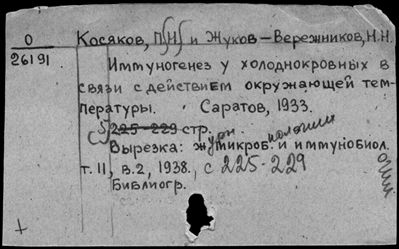 О
26191
Косяков, П.Н. и Жуков-Вережников, Н.Н.
Иммуногенез у холоднокровных в
связи с действием окружающей тем-
пературы. Саратов, 1933.
225-229 стр.
Вырезка: журн. микроб. и иммунобиол.
т. 11, в. 2, 1938, с 225-229
Библиогр.